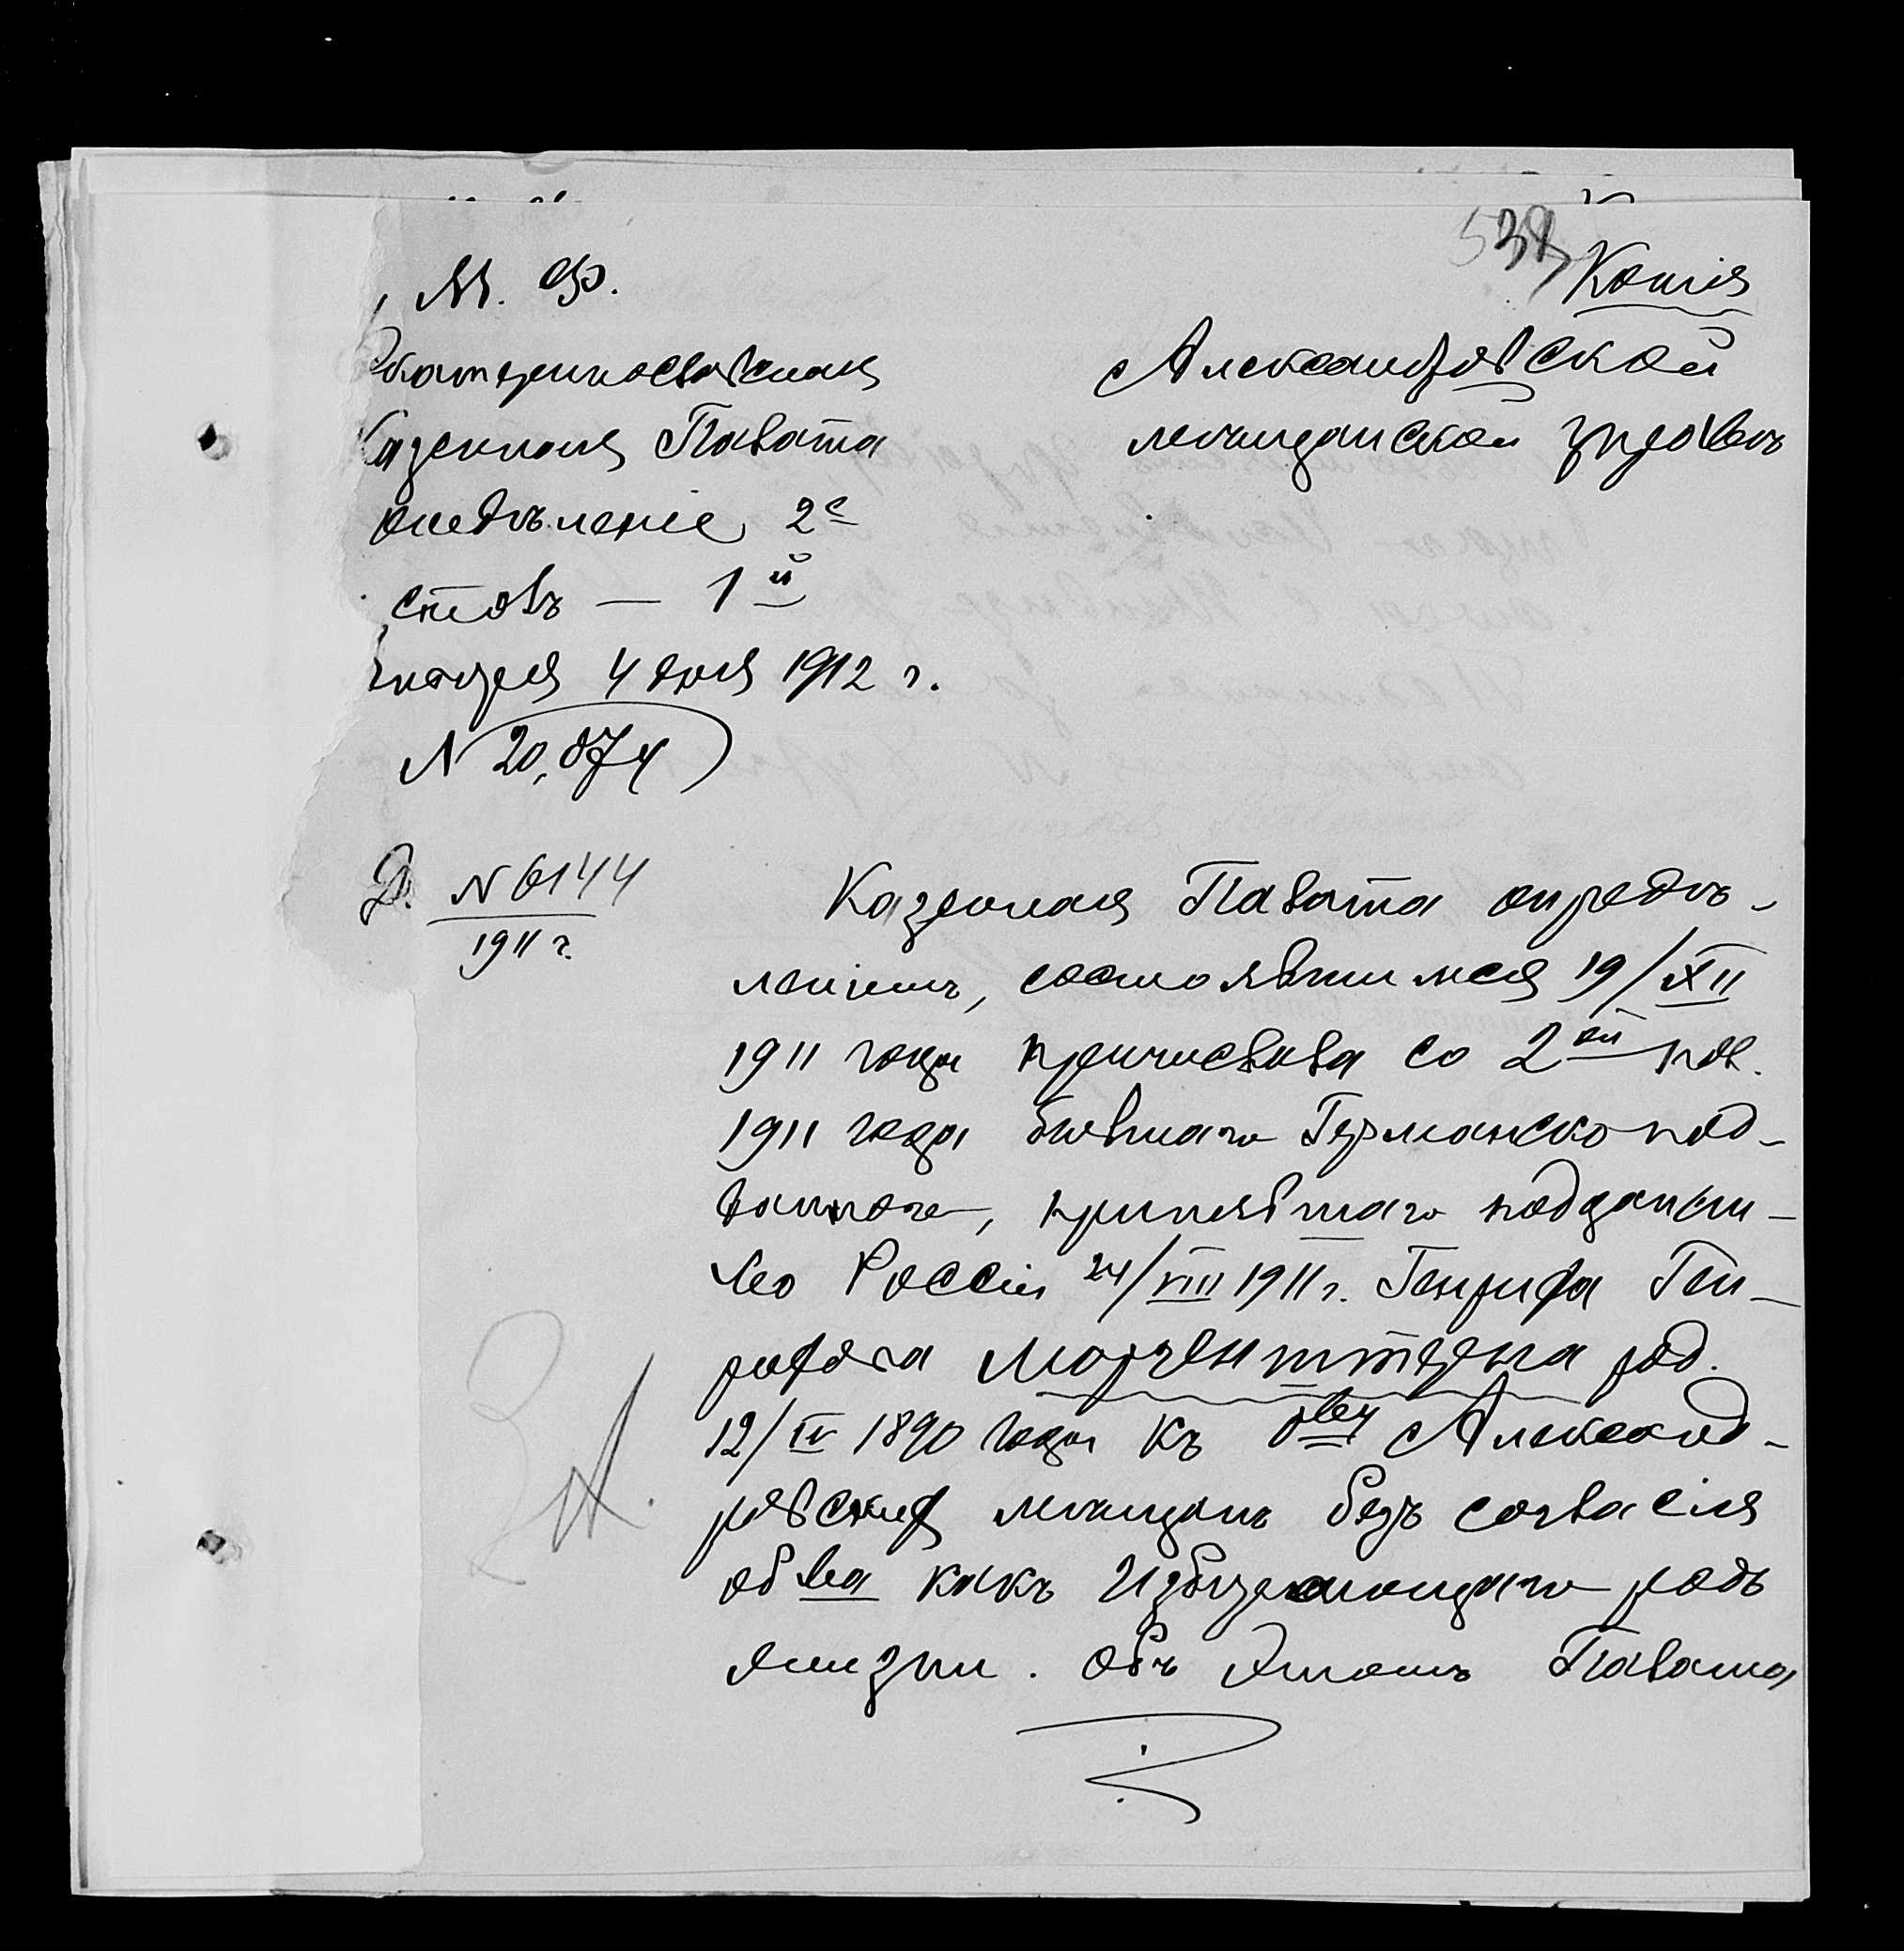 538
Копія
М. Ф.
Екатеринославская
Казенная Палата
Отдѣленіе 2е
столъ — 1й
января 4 дня 1912 г.
N 20,874
Александровской
мѣщанской управѣ
Д. N 6144
1911 г.
Казенная Палата опредѣ-
леніемъ, состоявшимся 19/XII
1911 года причислила со 2ой пол.
1911 года бывшаго Германско под-
даннаго, принявшаго подданст-
во Россіи 24/VIII 1911 г. Генриха Ген-
рихова Моргенштерна род.
12/IV 1890 года къ обву Александ-
ровскихъ мѣщанъ безъ согласія
об-ва какъ избирающаго родъ
жизни. Объ этомъ Палата